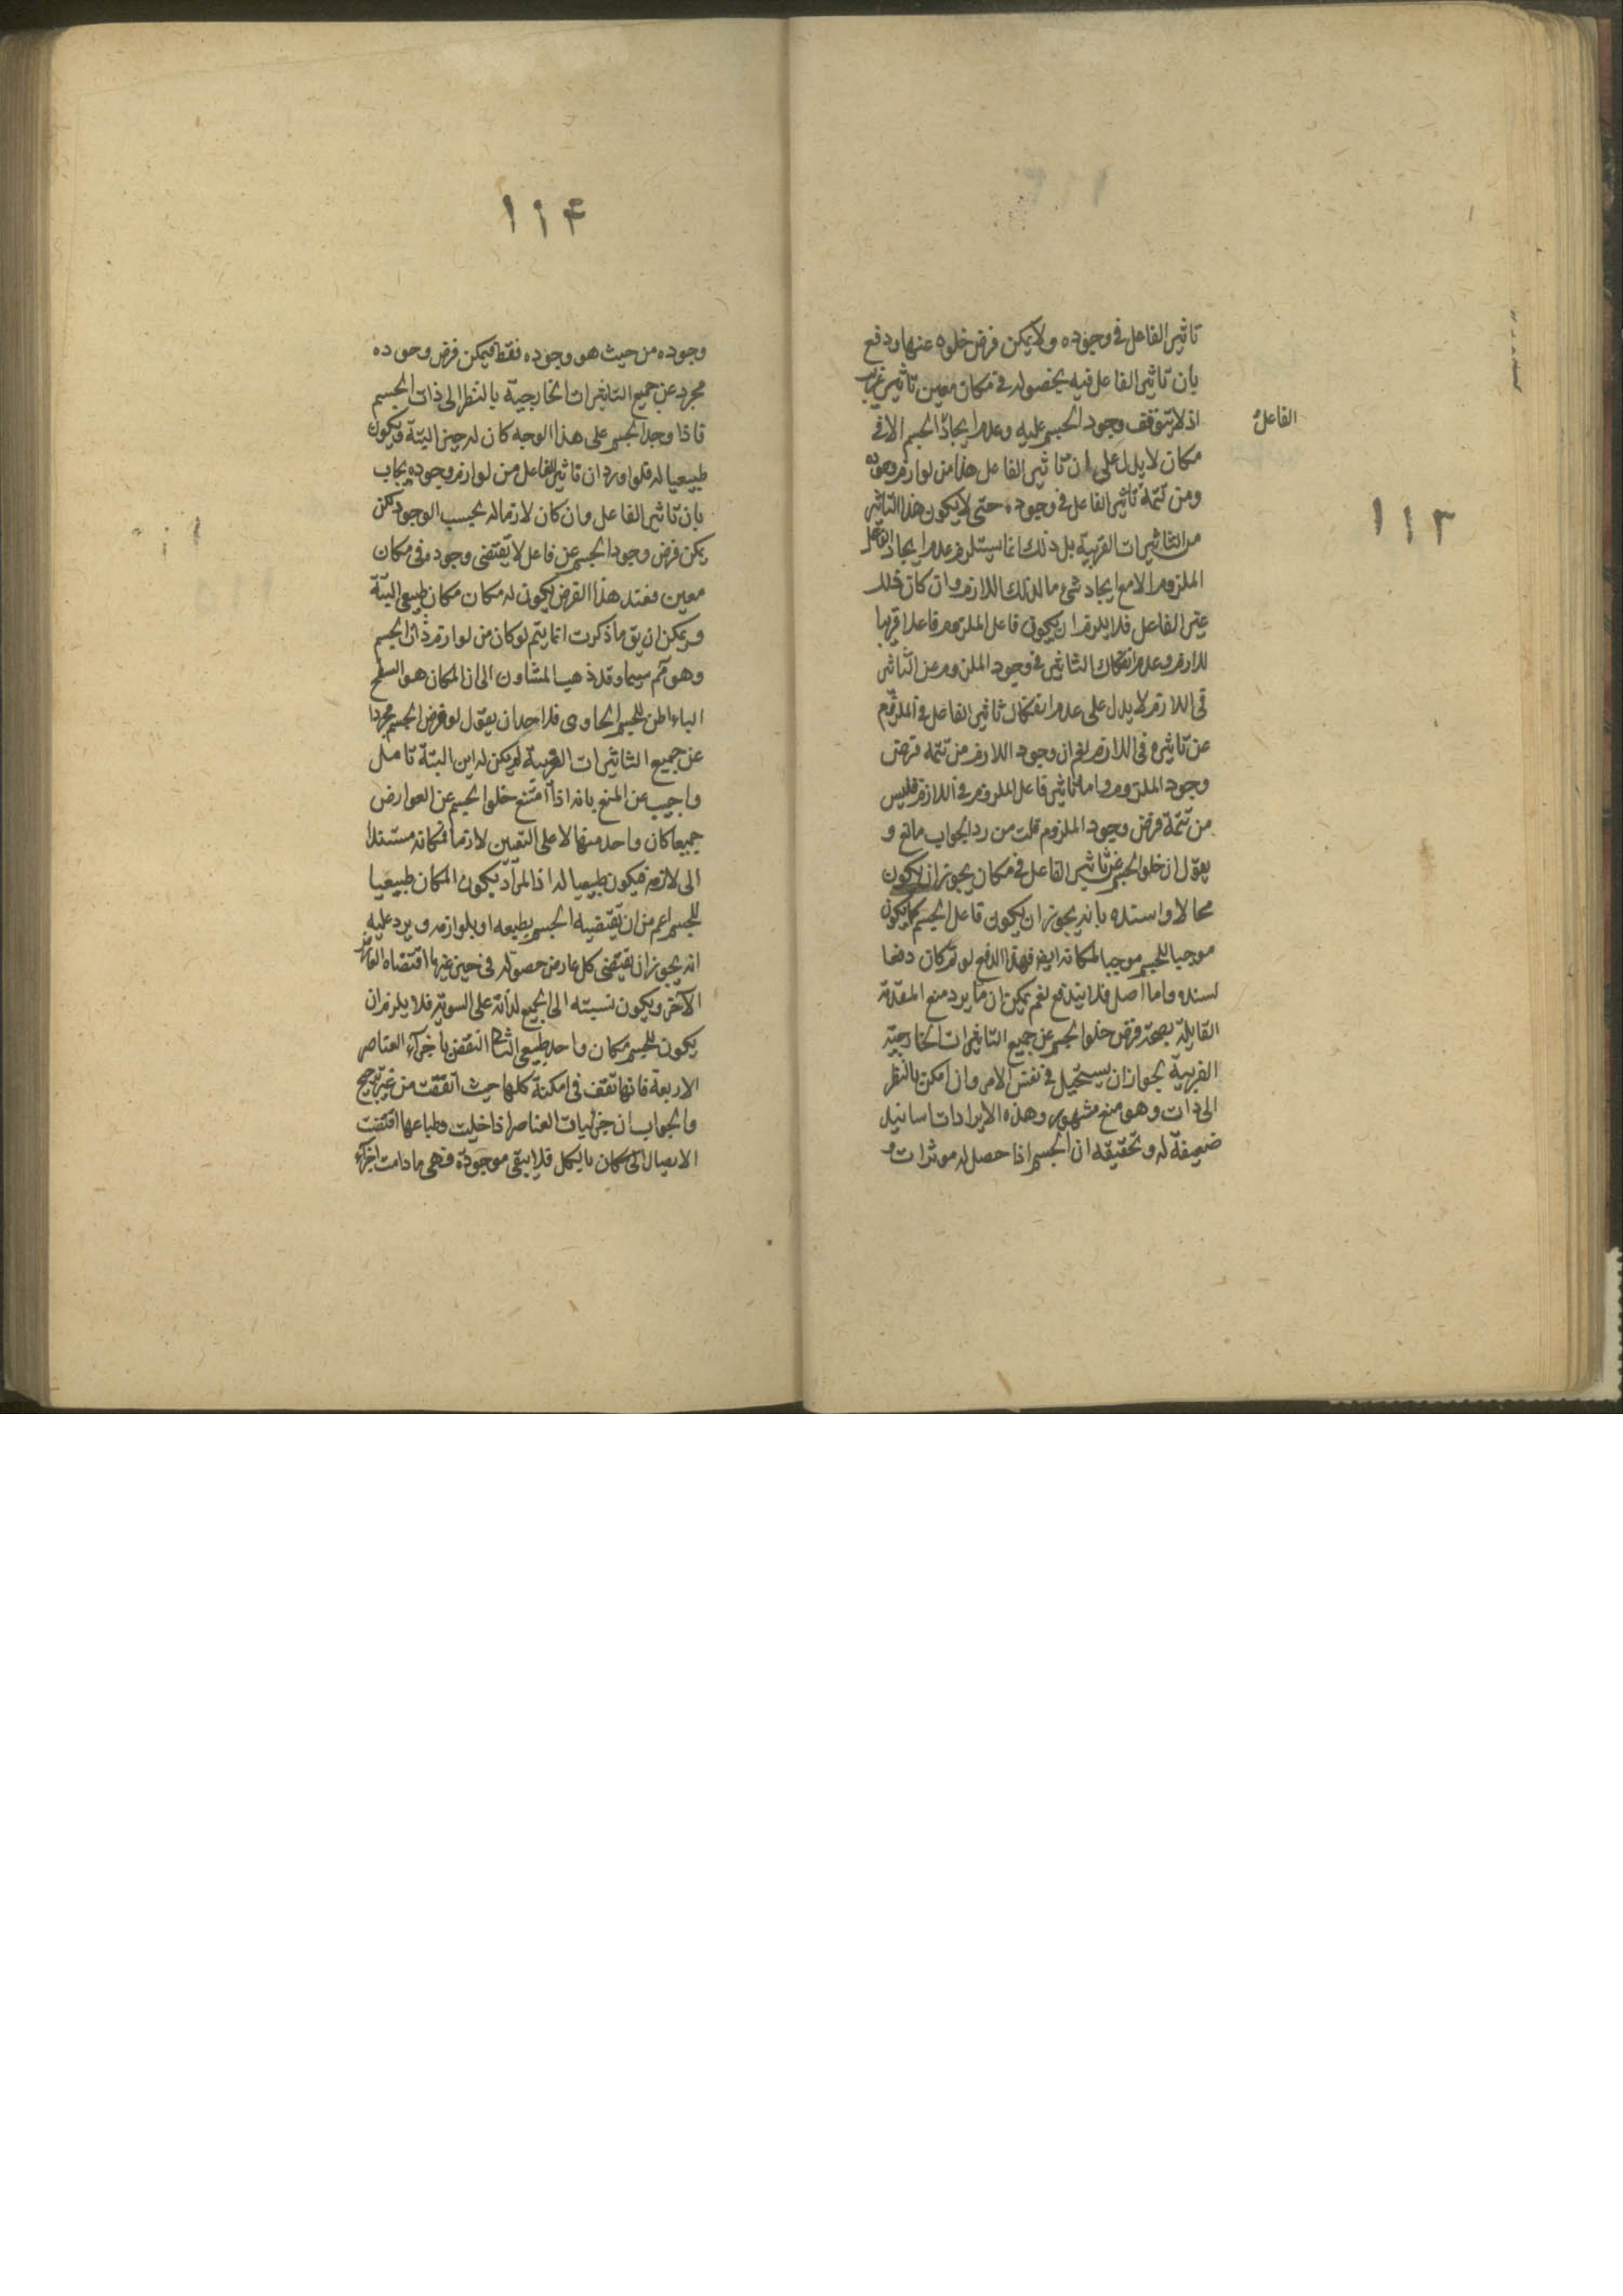 ١١٣
تاثير الفاعل فى وجوده ولا يمكن فرض خلوه عنها ودفع
بان تاثير الفاعل فيه بحصوله فى مكان معين تاثير غريب
اذ لا يتوقف وجود الجسم عليه وعدم ايجاد الجسم الا فى
الفاعل
مكان لا يدل على ان تاثير الفاعل هذا من لوازم وجوده
ومن تتمة تاثير الفاعل فى وجوده حتى لا يكون هذا التاثير
من التاثيرات القريبة بل ذلك انما يستلزم عدم ايجاد الفاعل
الملزوم الا مع ايجاد شئ ما لذلك اللازم وان كان ذلك
غير الفاعل فلا يلزم ان يكون فاعل الملزوم فاعلا قريبا
للازم وعدم انفكاك التاثير فى وجود الملزوم عن التاثير
فى اللازم لا يدل على عدم انفكاك تاثير الفاعل فى الملزوم
عن تاثيره فى اللازم نعم ان وجود اللازم من تتمه فرض
وجود الملزوم واما تاثير فاعل الملزوم فى اللازم فليس
من تتمة فرض وجود الملزوم قلت من رد الجواب مانع و
يقول ان خلو الجسم عن تاثير الفاعل فى مكان يجوز ان لا يكون
محالا واسنده بانه يجوز ان يكون فاعل الجسم كما يكون
موجبا للجسم موجبا لمكانه ايضا فهذا الدفع لو تم كان دفعا
لسنده واما اصل فلا يندفع نعم يمكن ان ما يرد منع المقدمة
القايلة بصحة فرض خلو الجسم عن جميع التاثيرات الخارجية
الغريبة لجواز ان يستحيل فى نفس الامر وان امكن بالنظر
الى ذات وهو منع مشهور وهذه الايرادات اسانيد
ضعيفة له وتحقيقه ان الجسم اذا حصل له موثرات و
١١۴
وجوده من حيث هو وجوده فقط فيمكن فرض وجوده
مجرد عن جميع التاثيرات الخارجية بالنظر الى ذات الجسم
فاذا وجد الجسم على هذا الوجه كان له حيز البتة فيكون
طبيعيا له فلو اورد ان تاثير الفاعل من لوازم وجوده يجاب
بان تاثير الفاعل وان كان لازما له بحسب الوجود لكن
يمكن فرض وجود الجسم عن فاعل لا يقتضى وجوده فى مكان
معين فعند هذا الفرض يكون له مكان مكان طبيعى البتة
ويمكن ان يق ما ذكرت انما يتم لو كان من لوازم ذات الجسم
وهو مم سيما وقد ذهب المشاون الى ان المكان هو السطح
الباطن للجسم الحاوى فلاحد ان يقول لو فرض الجسم مجردا
عن جميع التاثيرات الغريبة لم يكن له اين البتة تامل
واجيب عن المنع بانه اذا امتنع خلو الجسم عن العوارض
جميعا كان واحد منها لا على التعين لازما فمكانه مستندا
الى لازمه فيكون طبيعيا له اذ المراد بكون المكان طبيعيا
للجسم اعم من ان يقتضيه الجسم بطبعه او بلوازمه ويرد عليه
انه يجوز ان يقتضى كل عارض حصوله فى حيز غير ما اقتضاه العارض
الآخر ويكون نسبته الى الجميع لذاته على السوية فلا يلزم ان
يكون للجسم مكان واحد طبيعى الثالث النقض باجزآء العناصر
الاربعة فانها تقف فى امكنة كلها حيث اتفقت من غير ترجيح
والجواب ان جزئيات العناصر اذا خليت وطباعها اقتضت
الاتصال الى مكان بالكل فلا يبقى موجودة فهى ما دامت اجزآء